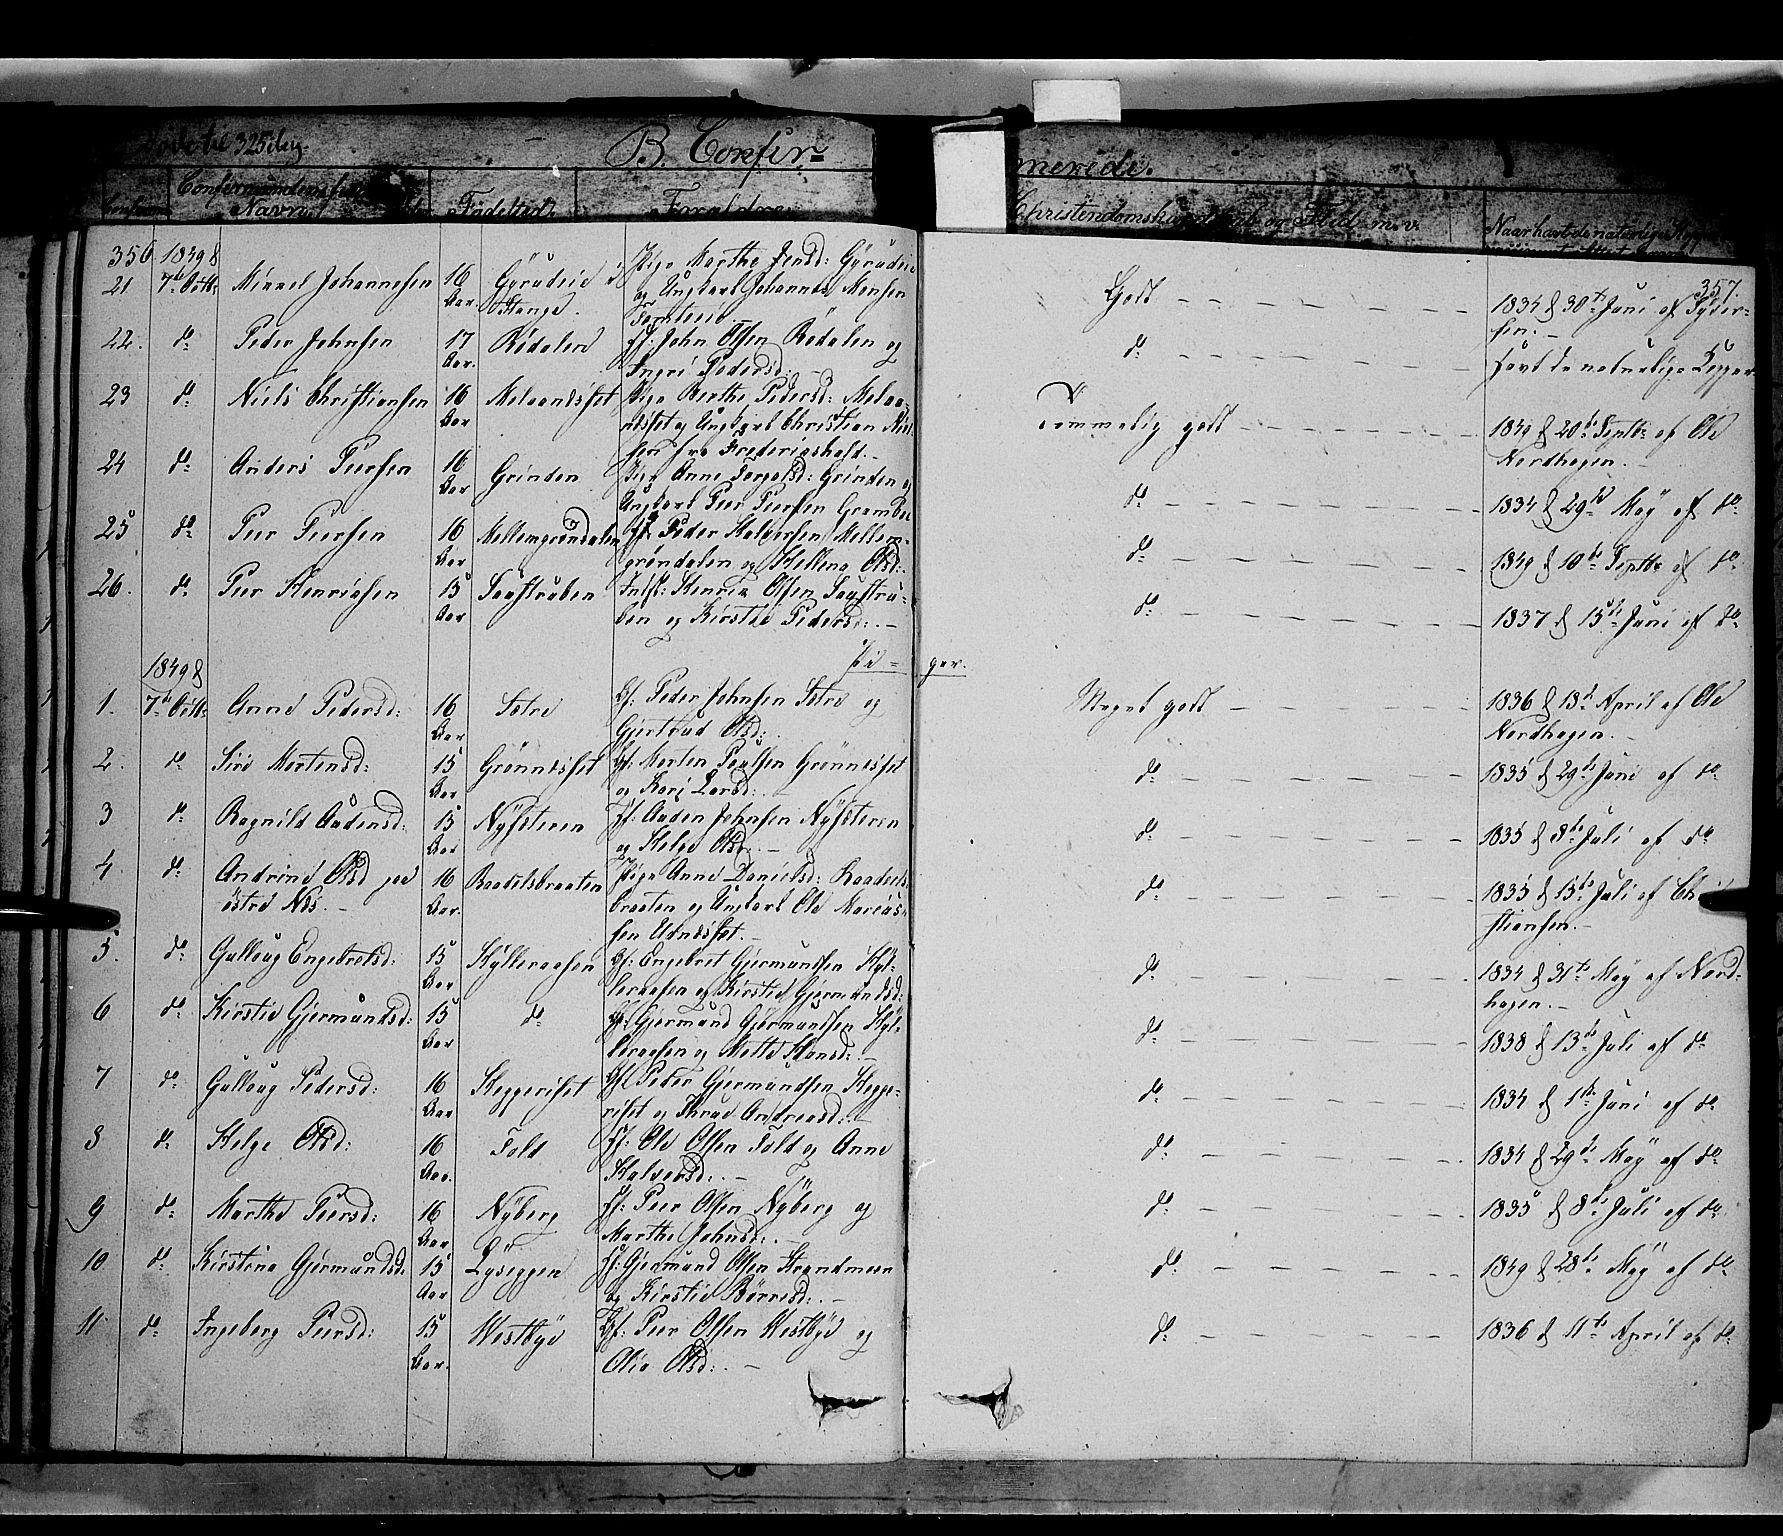 325 den
B. Confir=
merede.
Navn
Fødested
Forældre
Christendomskundskab og Flid m.v.
356
357.
1849 &
21 7de Octb: Mikael Johannesen 16 Aar. Gyrudeie Stange. Pige Marthe Jensd: Gyrudeie
og Ungkarl Johannes Monsen
Tomteeie.
Godt 1834 & 30te Juni af Syver=
sen.
22. do Peder Johnsen 17 Aar. Rødalen Gf: John Olsen Rødalen og
Ingri Pedersd:
do havt de naturlige Kopper
23 do Niels Christiansen 16 Aar Melaandsset Pige Berthe Pedersd: Melaa=
ndsset og Ungkarl Christian Niel=
sen fra Frederigshald.
Temmelig godt 1849 & 20de Septbr af Ole
Nordhagen.
24 do Anders Peersen 16 Aar Grinden Pige Anne Torgalsd: Grinden og
Ungkarl Peer Peersen
do 1834 & 29de May af do
25 do Peer Peersen 16 Aar Mellemgrøndalen Gf: Peder Halvorsen Mellem=
grøndalen og Hellena Olsd:
do 1849 & 10de Septbr af do
26. do Peer Henriksen 15 Aar Saastruben Henrik Olsen Saastru=
ben og Kirstie Pedersd:
do 1837 & 15de Juni af do
Pi=ger.
1849 &
1. 7de Octb: Anne Pedersd: 16 Aar Sætre Gf: Peder Johnsen Sætre og
Gjertrud Olsd:
Meget godt 1836 & 13de April af Ole
Nordhagen.
2. do Siri Mortensd: 15 Aar Grønnesset Gf: Morten Paulsen Grønnesset
og Kari Larsd:
do 1835 & 29de Juni af do
3 do Ragnild Audensd: 15 Aar Nysæteren Gf: Auden Johnsen Nysæteren
og Helge Olsd:
do 1835 & 8de Juli af do
4. do Andrine Olsd paa
østre Næs. 16 Aar. Raadelsbraaten Pige Anne Danielsd: Raadels
braaten og Ungkarl Ole Marius=
sen
do 1835 & 15de Juli af Chri
stiansen.
5. do Gulloug Engebretsd: 15 Aar Hylleraasen Gf: Engebret Gjermundsen Hyl=
leraasen og Kirstie Gjermundsd:
do 1834 & 31te May af Nord=
hagen.
6 do Kirstie Gjermundsd: 15 Aar do Gf: Gjermund Gjermundsen Hyl=
leraasen og Mette Hansd:
do 1838 & 13de Juli af do
7 do Gulloug Pedersd: 16 Aar Heggeriset Gf: Peder Gjermundsen Hegge=
riset og Thrue Andreasd:
do 1834 & 1ste Juni af do
8 do Helge Olsd: 16 Aar. Told Gf: Ole Olsen Told og Anne
Halvorsd:
do 1834 & 29de May af do
9 do Marthe Peersd: 16 Aar. Nyberg Gf: Peer Olsen Nyberg og
Marthe Johnsd:
do 1835 & 8de Juli af do
10 do Kirstina Gjermundsd: 15 Aar Lyseggen Gf: Gjermund Olsen Strandmoen
og Kirstie Børresd:
do 1849 & 28de May af do
11 do Ingeborg Peersd: 15 Aar. Westbye Gf: Peer Olsen Westbye og
Olia Olsd:
do 1836 & 11te April af do